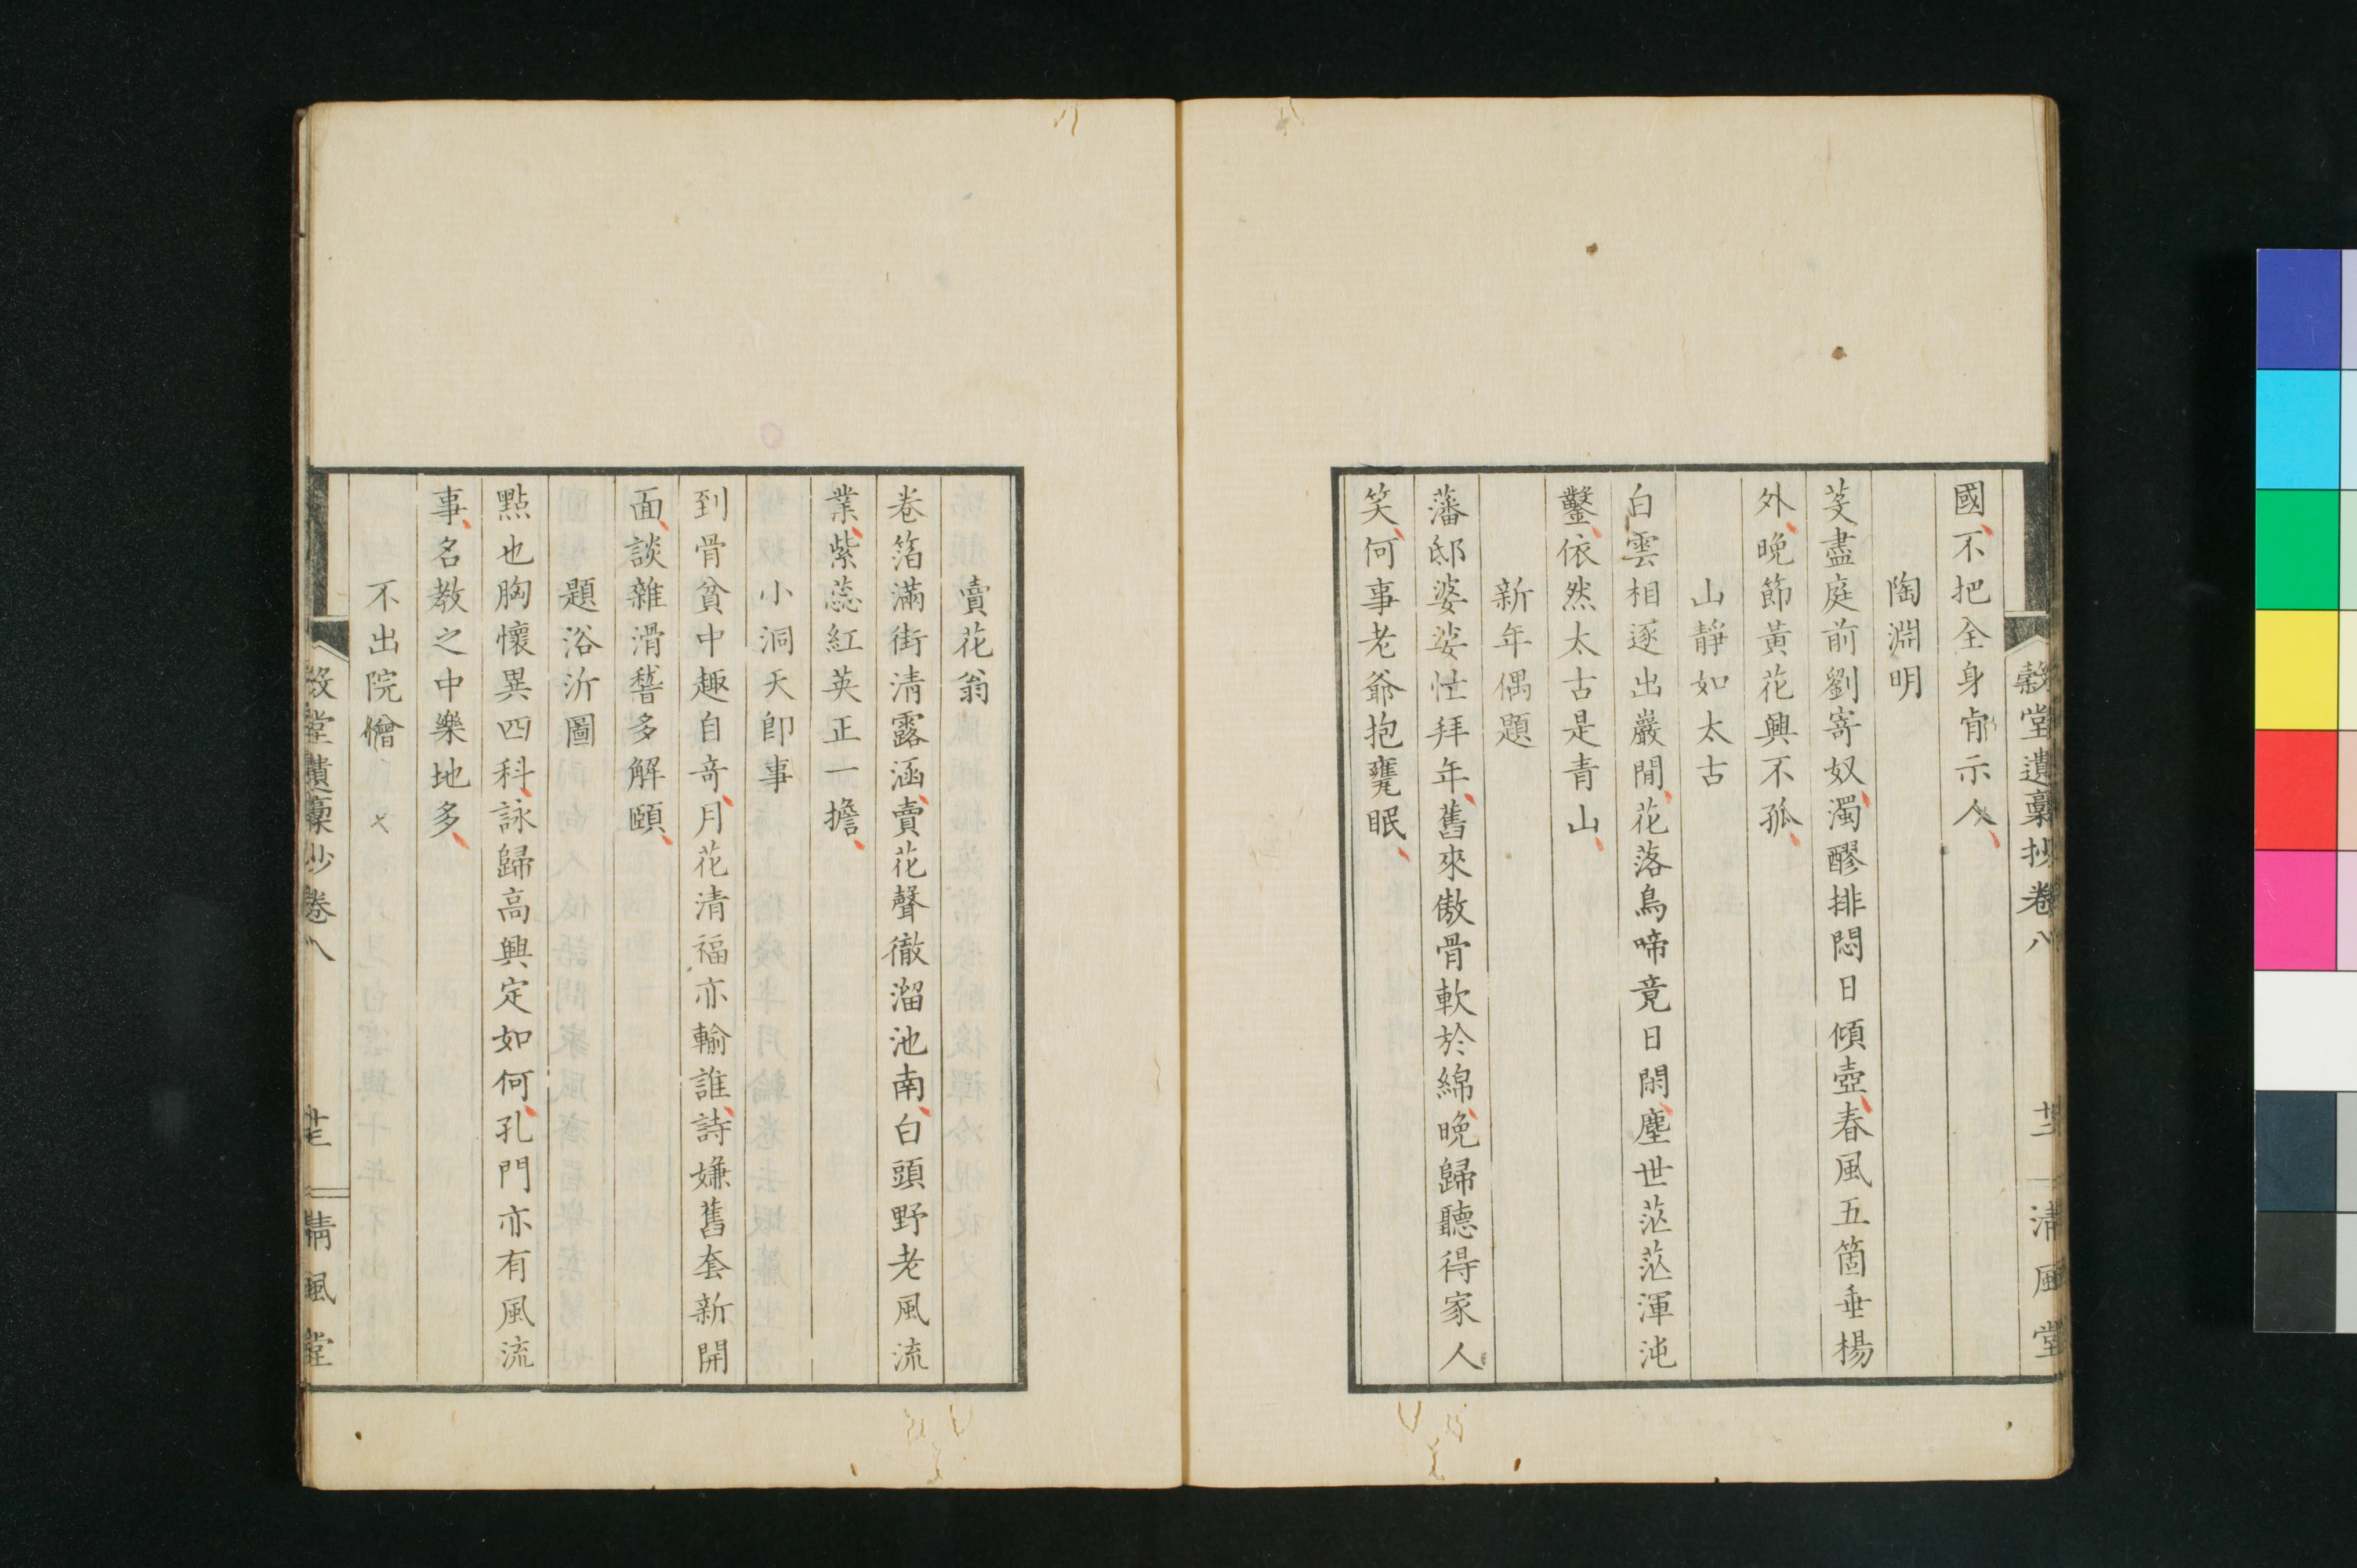 穀堂遺稾抄卷八 廿二 清風堂
國、不把全身肯示人、
陶淵明
芟盡庭前劉寄奴、濁醪排悶日傾壺、春風五箇垂楊
外、晚節黃花興不孤、
山靜如太古
白雲相逐出巖間、花落鳥啼竟日閑、塵世茫茫渾沌
鑿、依然太古是青山、
新年偶題
藩邸婆娑怯拜年、舊來傲骨軟於綿、晚歸聽得家人
笑、何事老爺抱甕眠、
賣花翁
卷箔滿街清露涵、賣花聲徹溜池南、白頭野老風流
業、紫蕊紅英正一擔、
小洞天卽事
到骨貧中趣自奇、月花清福亦輸誰、詩嫌舊套新開
面、談雜滑稽多解頤、
題浴沂圖
點也胸懷異四科、詠歸高興定如何、孔門亦有風流
事、名教之中樂地多、
不出院僧
穀堂遺稾抄卷八 廿三 清風堂